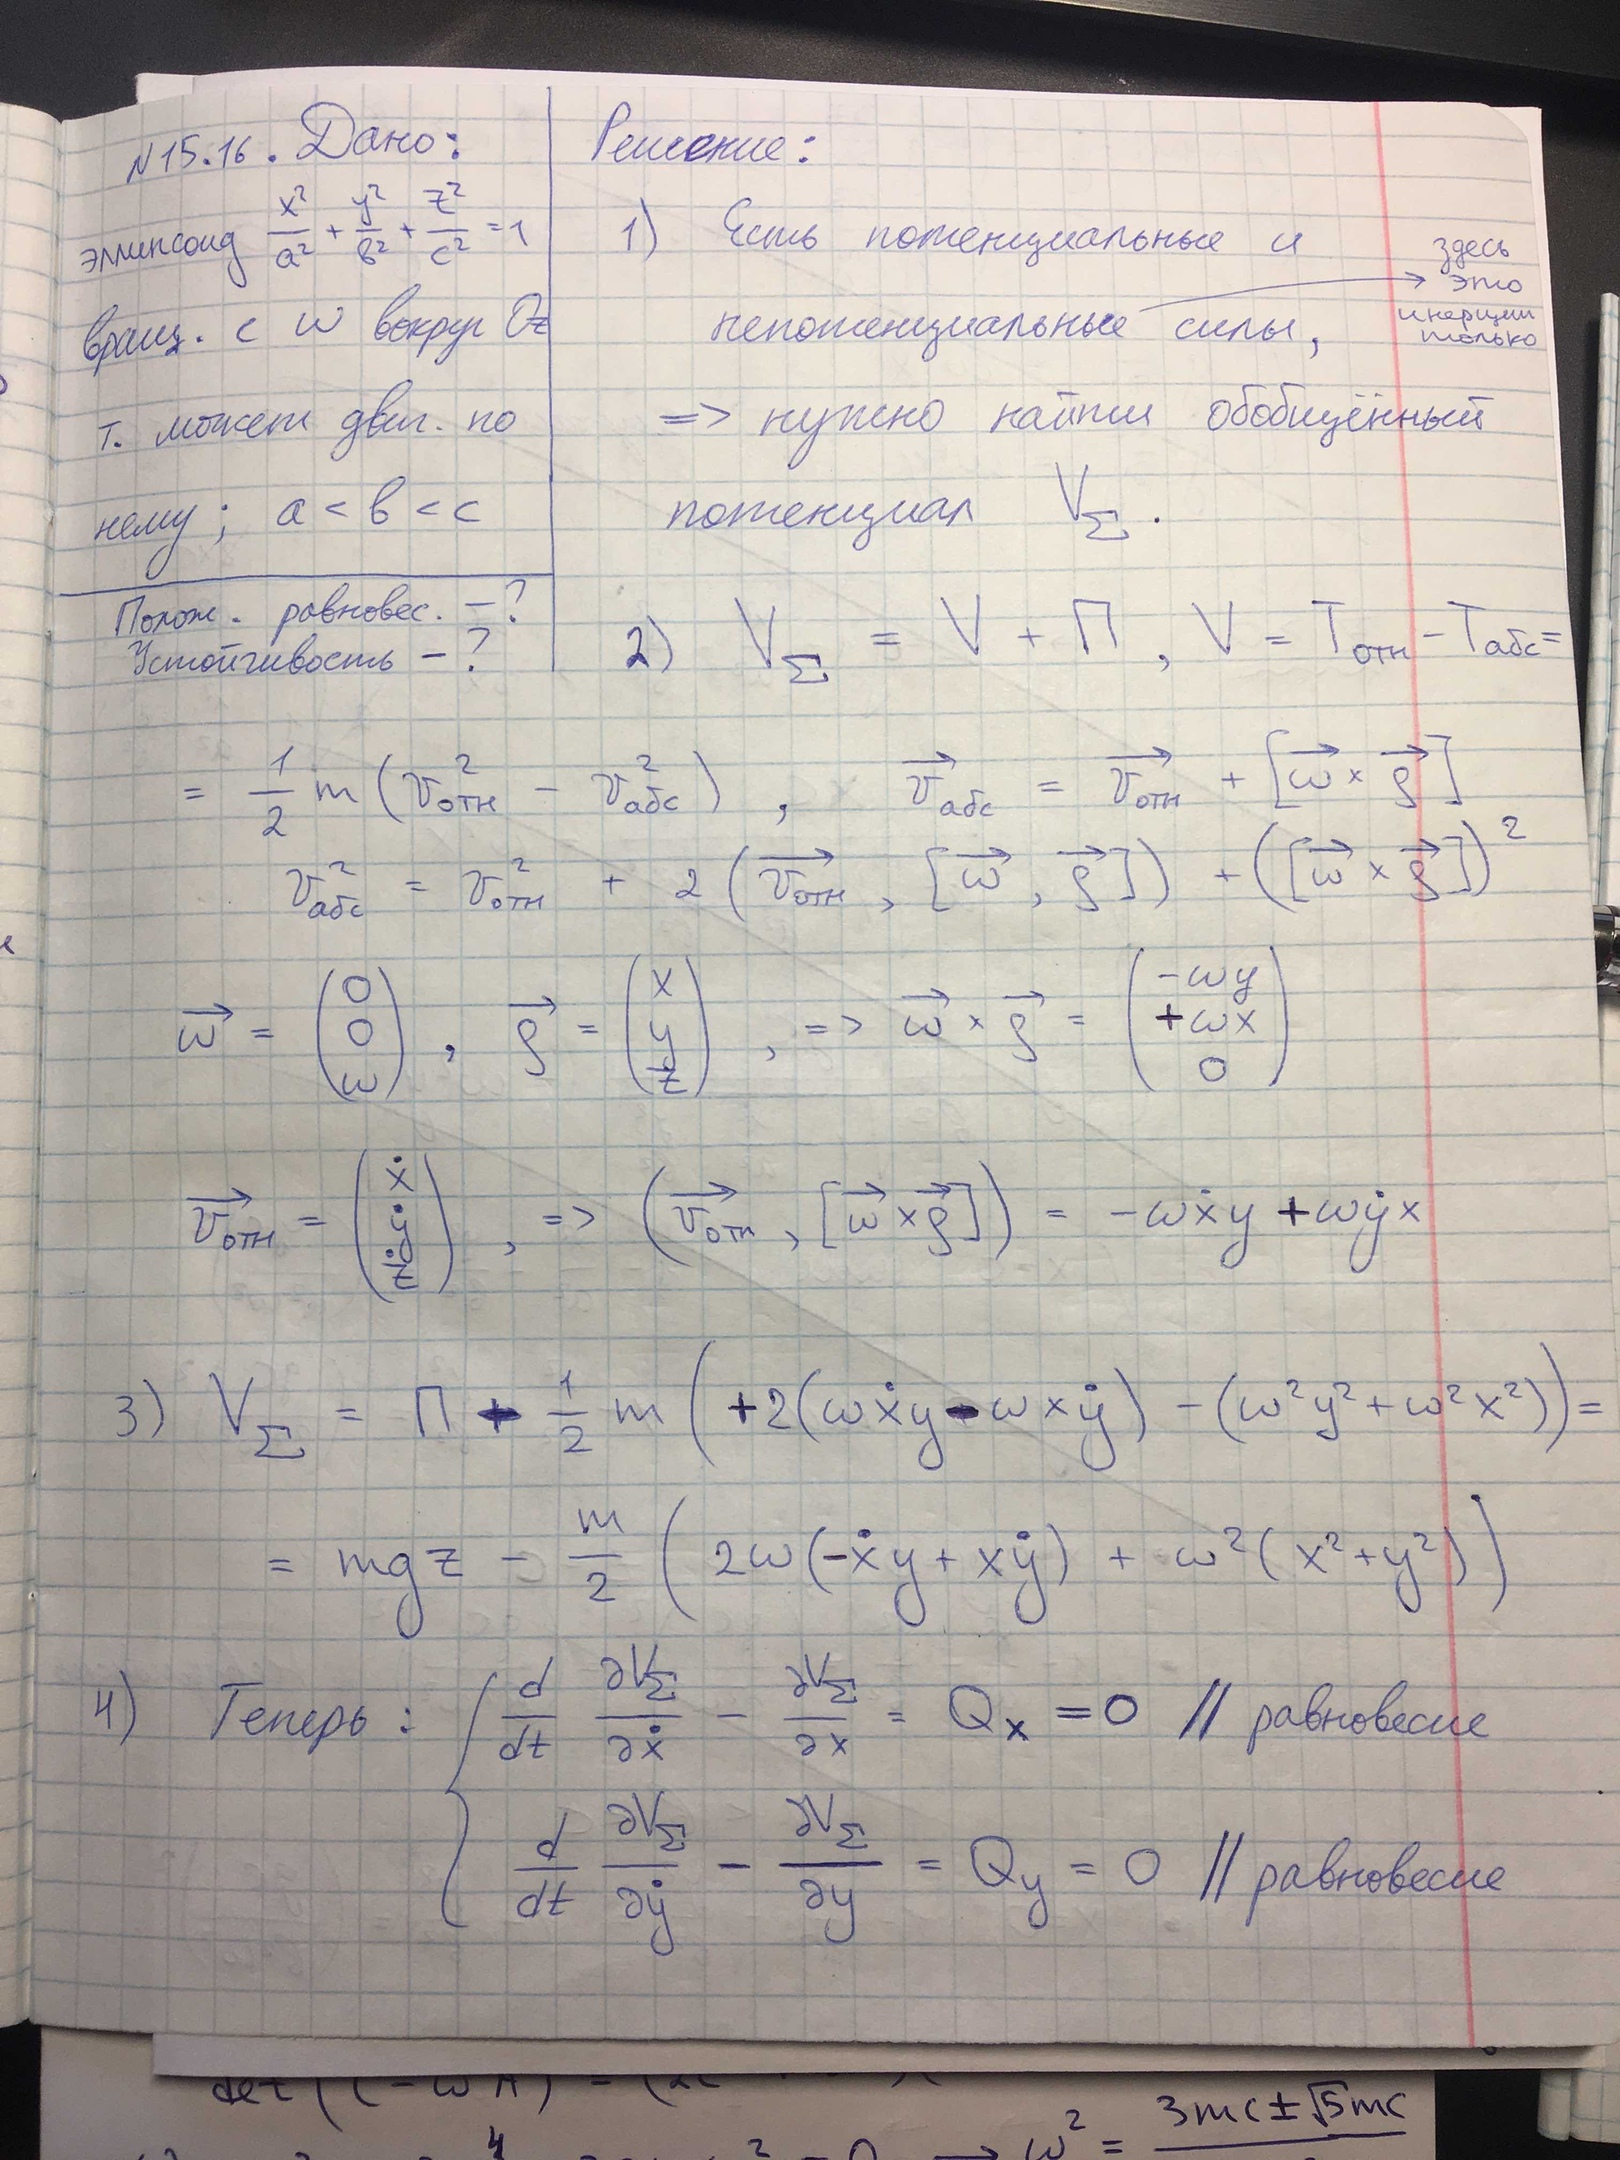 N15.16. Дано:
эллипсоид x²/a² + y²/b² + z²/c² = 1
вращ. с ω вокруг Oz
т. может двиг. по
нему; a < b < c
Полож. равновес. – ?
Устойчивость – ?
Решение:
1) Есть потенциальные и
непотенциальные силы,
→ здесь
это
инерции
только
=> нужно найти обобщённый
потенциал V_Σ.
2) V_Σ = V + П, V = T_отн – T_абс =
= 1/2 m (v²_отн – v²_абс), v⃗_абс = v⃗_отн + [ω⃗ × ρ⃗]
v²_абс = v²_отн + 2 (v⃗_отн, [ω⃗, ρ⃗]) + ([ω⃗ × ρ⃗])²
ω⃗ = (0 0 ω), ρ⃗ = (x y z), => ω⃗ × ρ⃗ = (-ωy +ωx 0)
v⃗_отн = (ẋ ẏ ż), => (v⃗_отн, [ω⃗ × ρ⃗]) = -ωẋy + ωẏx
3) V_Σ = П + 1/2 m (+2(ωẋy - ωxẏ) – (ω²y² + ω²x²)) =
= mgz – m/2 (2ω(-ẋy + xẏ) + ω²(x² + y²))
4) Теперь: { d/dt ∂V_Σ/∂ẋ – ∂V_Σ/∂x = Q_x = 0 // равновесие
d/dt ∂V_Σ/∂ẏ – ∂V_Σ/∂y = Q_y = 0 // равновесие
ω² = 3mc ± √5mc